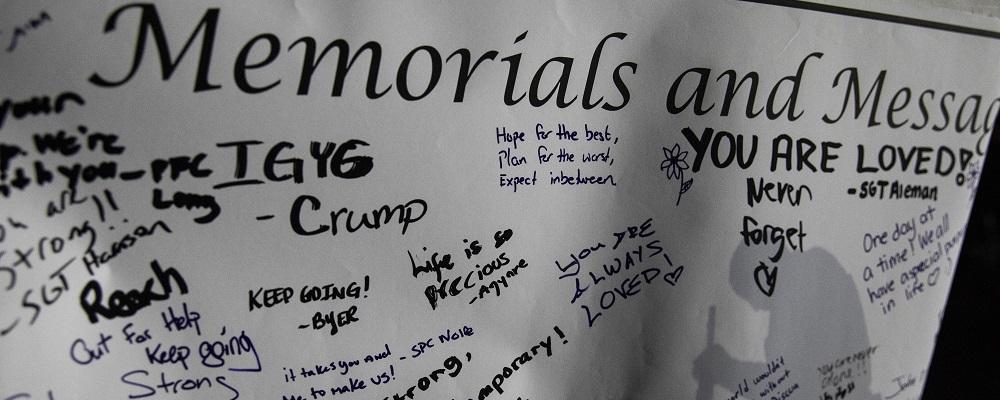 Memorials and Messag
your
We're
with you - PFC
Long
IGY6
- Crump
Hope for the best,
Plan for the worst,
Expect inbetween
YOU ARE LOVED!
- SGT Aleman
Never
forget
One day at
a time! We all
have a special
in life
Strong!!
- SGT Harrison
Reach
Out For Help
Keep going
Strong
KEEP GOING!
- BYER
Life is so
precious
- Agyare
You are
ALWAYS
LOVED!
it takes you and - SPC
me to make us!
Strong,
temporary!
world wouldn't
without
You are never
alone!!